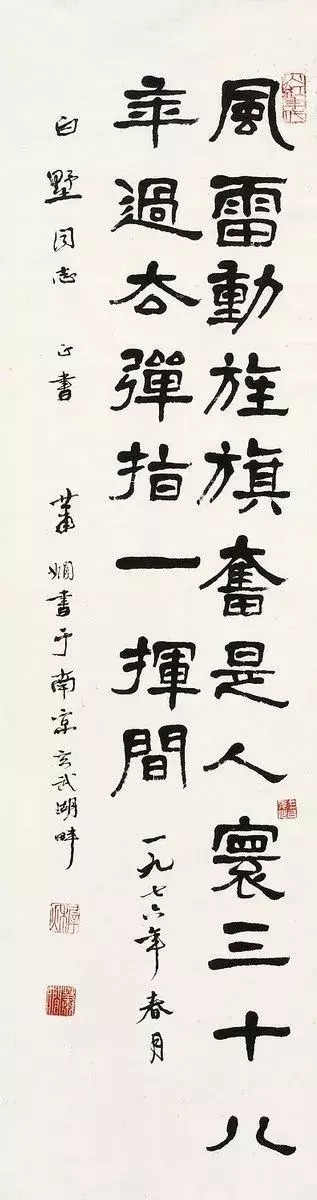 風雷動旌旗奮是人寰三十八
年過去彈指一揮間 一九七六年春月
白墅同志 正書 蕭嫻書于南京玄武湖畔